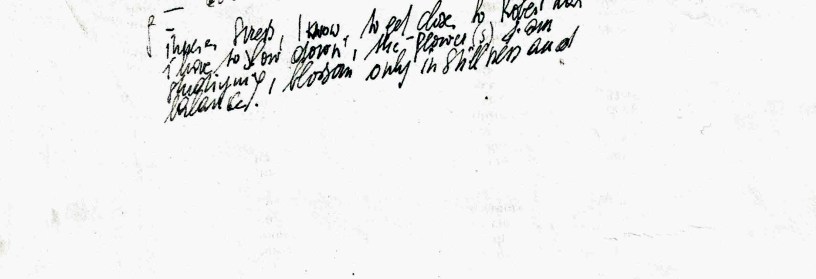 stress, I know, to get close to Robert
I have to slow down, the flower(s) I am
studying, blossom only in stillness and
balance.